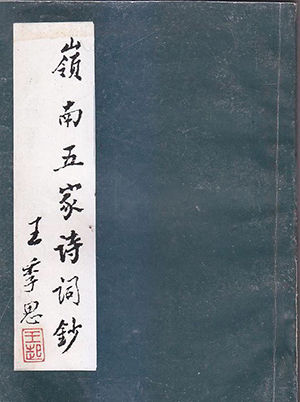 嶺南五家诗词鈔
王季思
王起